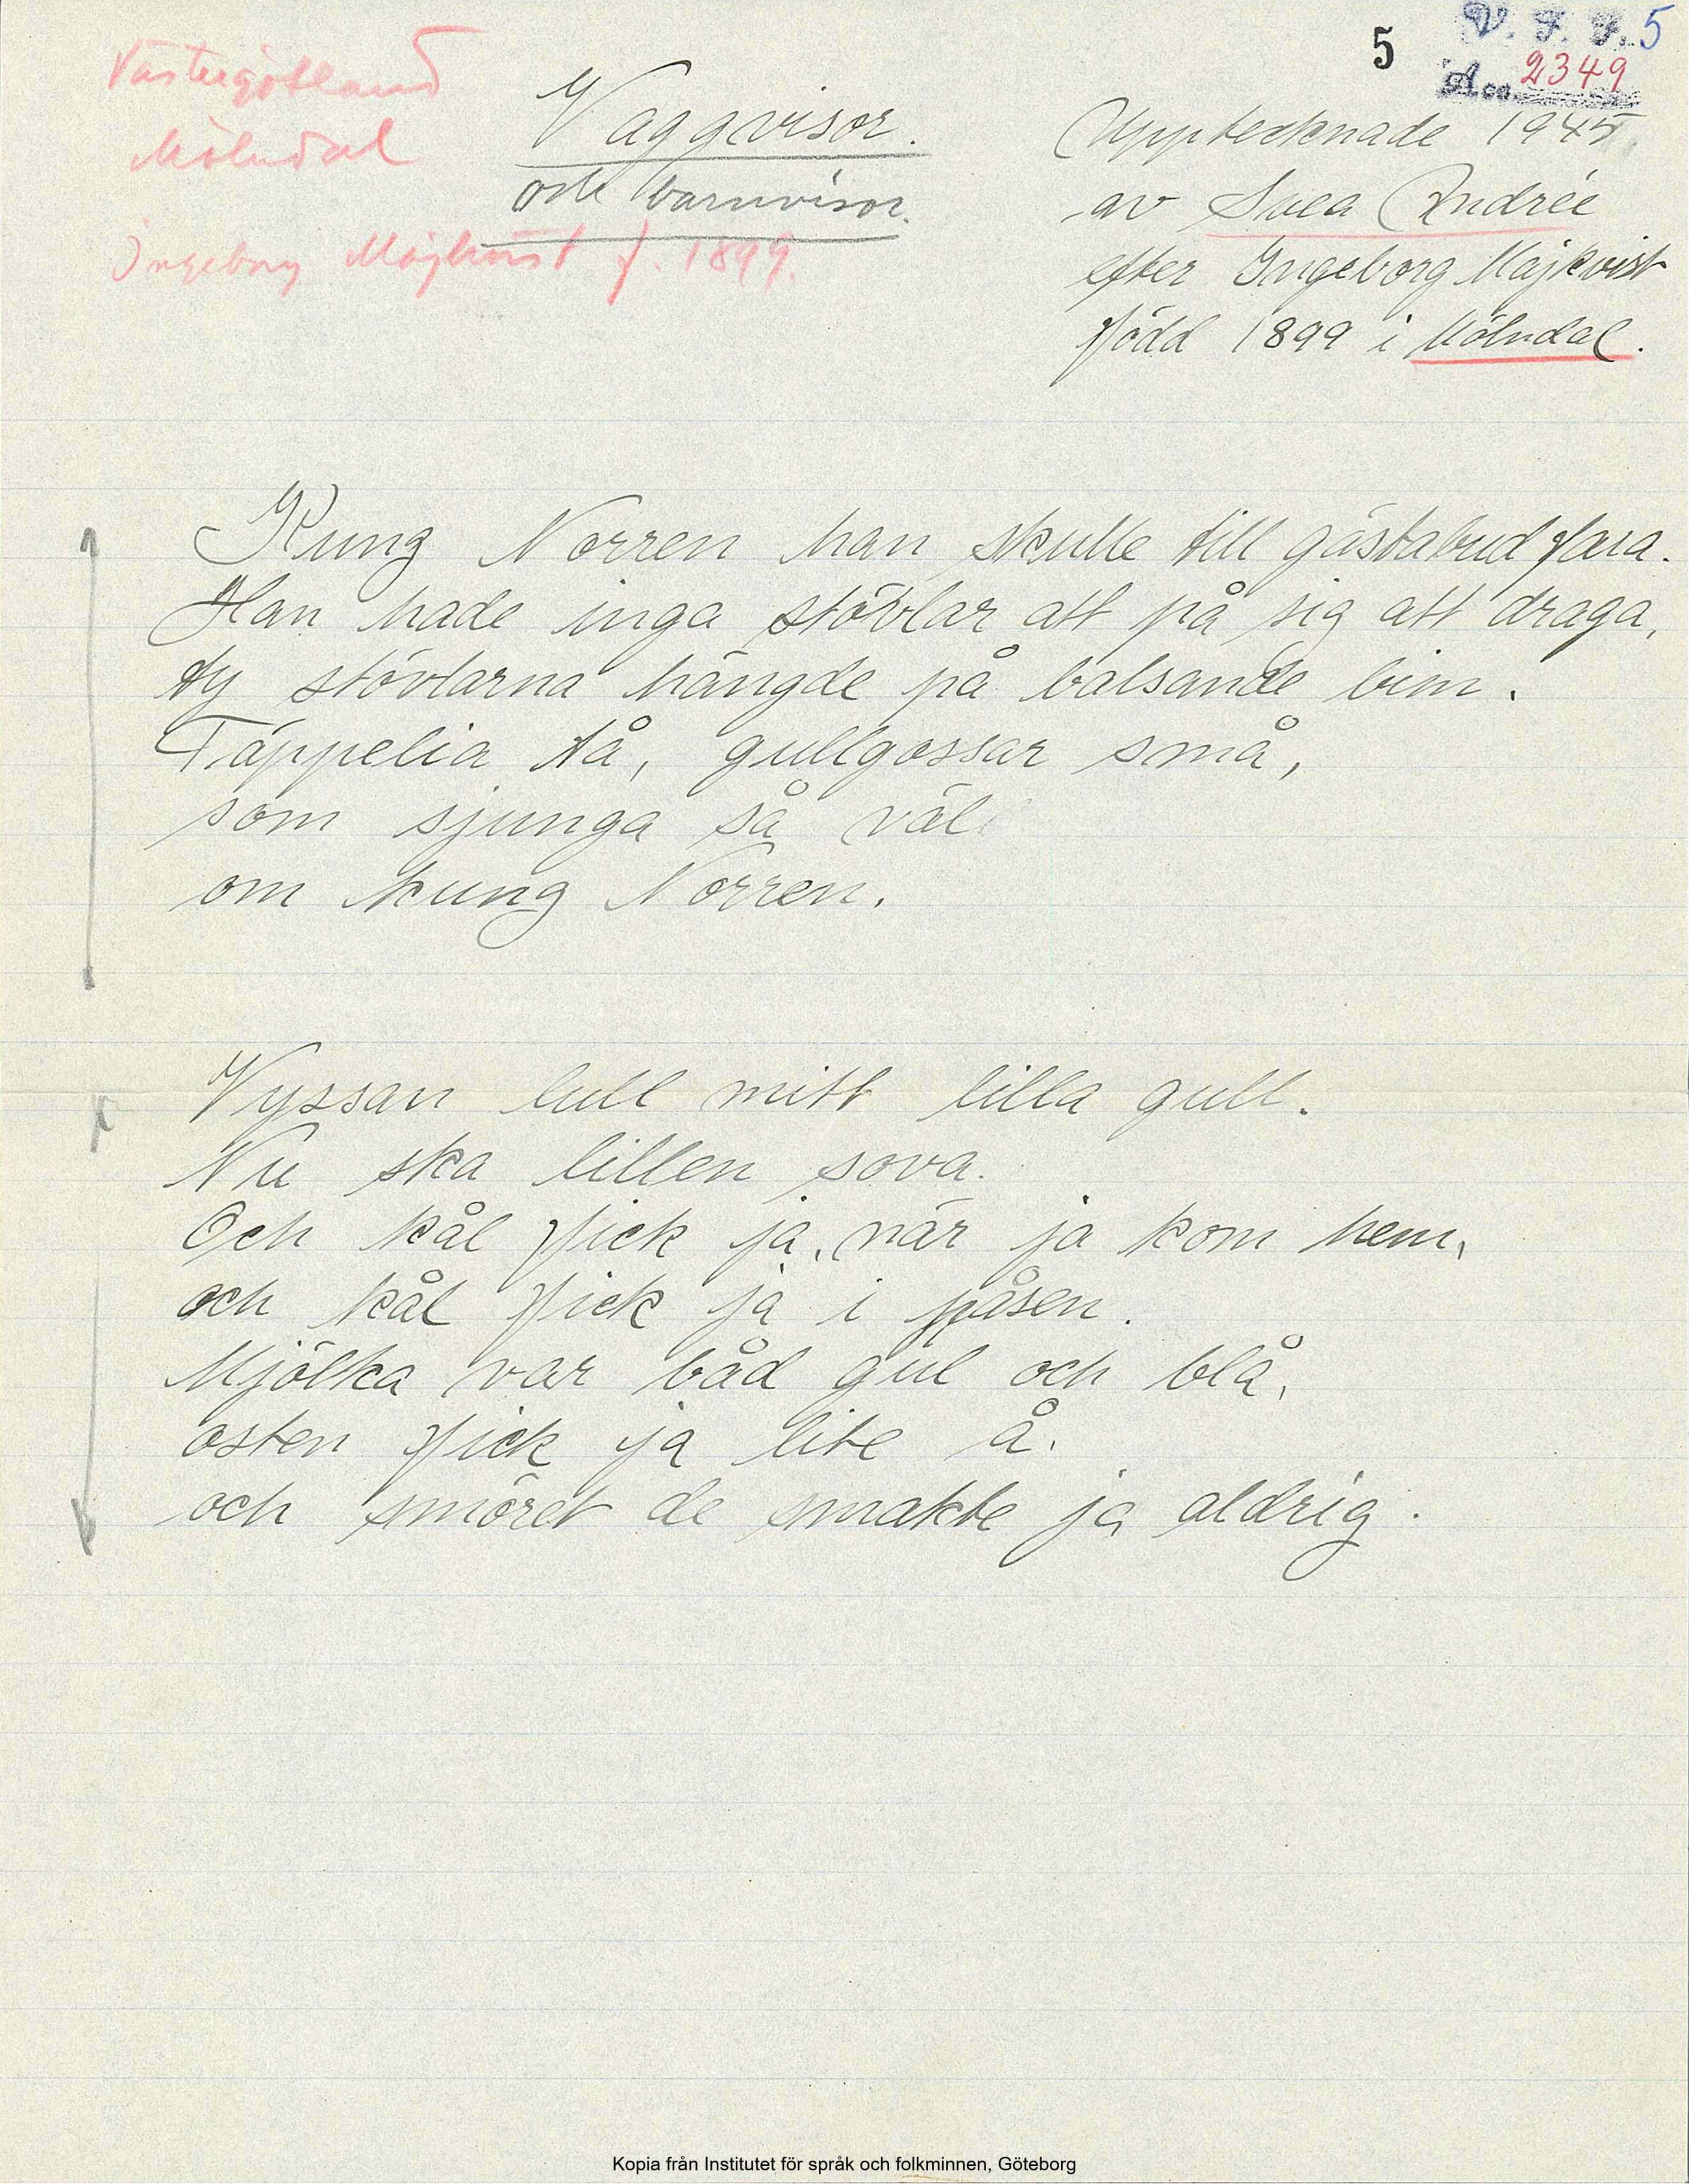 5 V. F. F. 5
Acc. 2349
Västergötland
Mölndal
Ingeborg Majkvist f. 1899.
Vaggvisor.
och barnvisor.
Upptecknade 1945
av Svea Andrée
efter Ingeborg Majkvist
född 1899 i Mölndal.
Kung Norren han skulle till gästabud fara.
Han hade inga stövlar att på sig att draga,
ty stövlarna hängde på balsande bim.
Täppelia tå, gullgossar små,
som sjunga så väl
om kung Norren.
Vyssan lull mitt lilla gull.
Nu ska lillen sova.
Och kål fick ja, när ja kom hem,
och kål fick ja i påsen.
Mjölka var båd gul och blå,
osten fick ja lite å.
och smöret de smakte ja aldrig.
Kopia från Institutet för språk och folkminnen, Göteborg